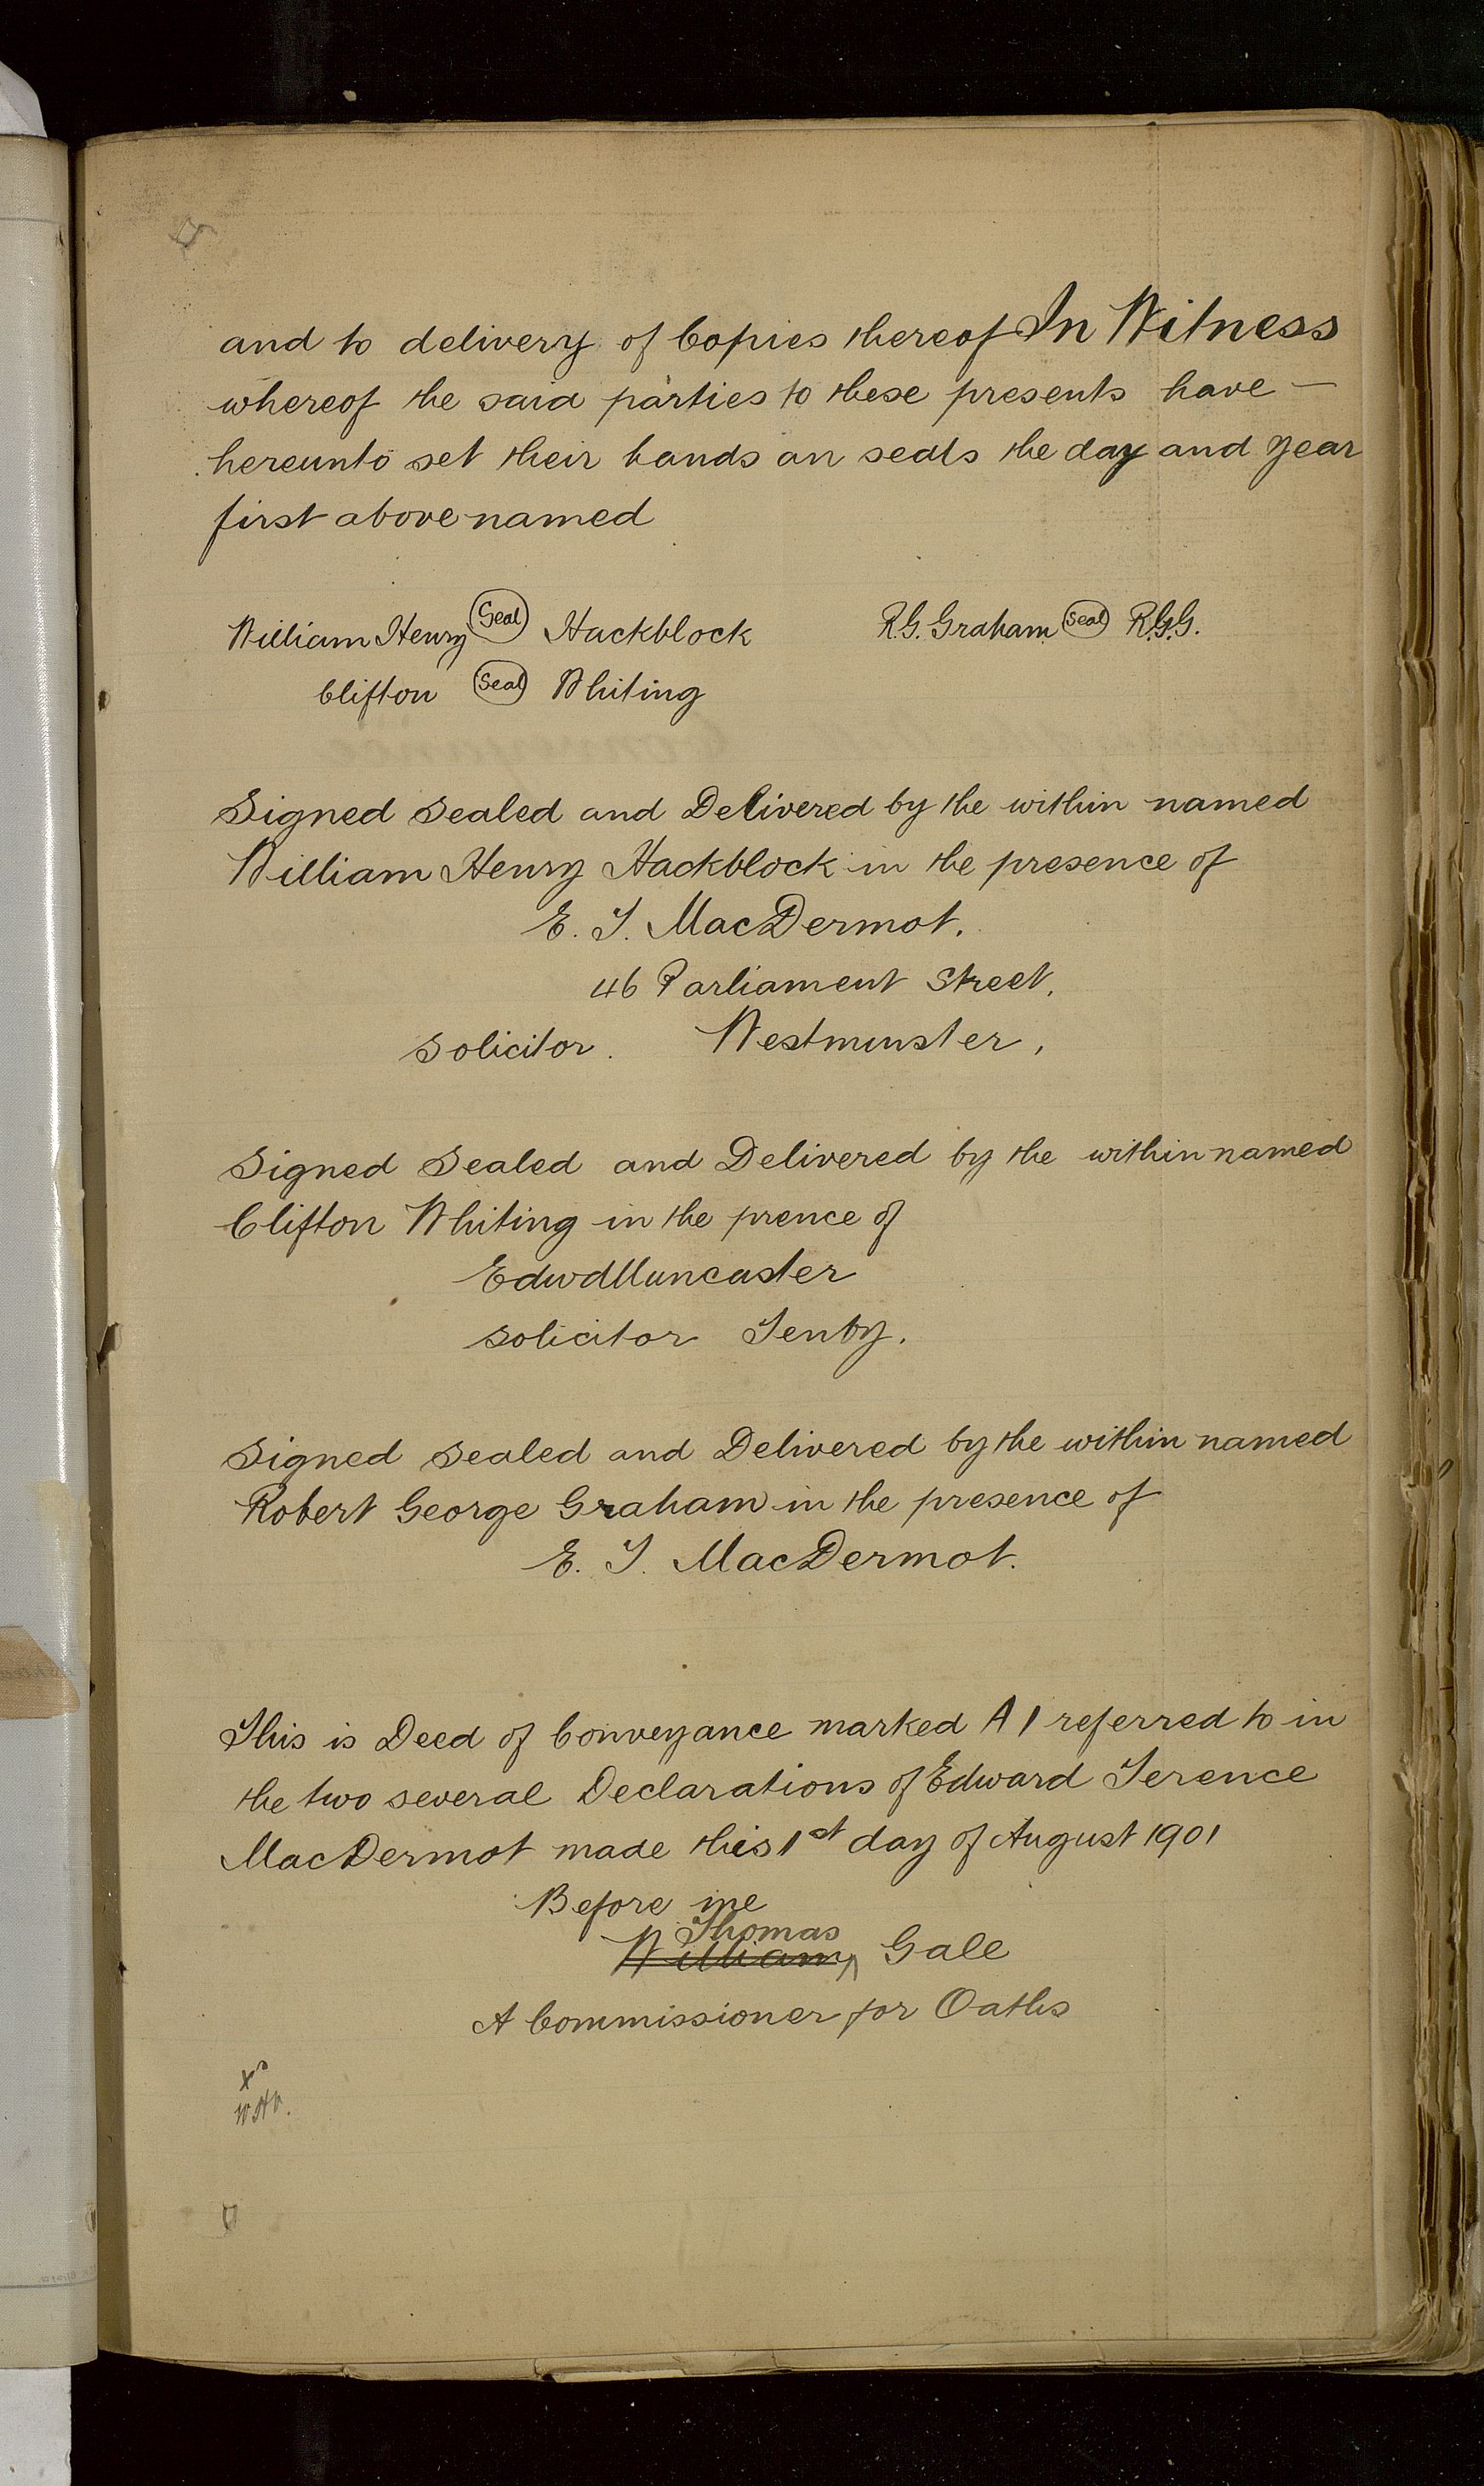 and to delivery of Copies thereof In Witness
whereof the said parties to these presents have —
hereunto set their hands an seals the day and year
first above named
William Henry (Seal) Hackblock R.G. Graham (Seal) R.G.G.
Clifton (Seal) Whiting
Signed Sealed and Delivered by the within named
William Henry Hackblock in the presence of
E. T. MacDermot.
46 Parliament Street,
Solicitor. Westminster,
Signed Sealed and Delivered by the within named
Clifton Whiting in the prence of
Edwd Muncaster
Solicitor Tenby.
Signed Sealed and Delivered by the within named
Robert George Graham in the presence of
E. T. MacDermot.
This is Deed of Conveyance marked A 1 referred to in
the two several Declarations of Edward Terence
MacDermot made this 1st day of August 1901
Before me
Thomas
William Gale
A Commissioner for Oaths